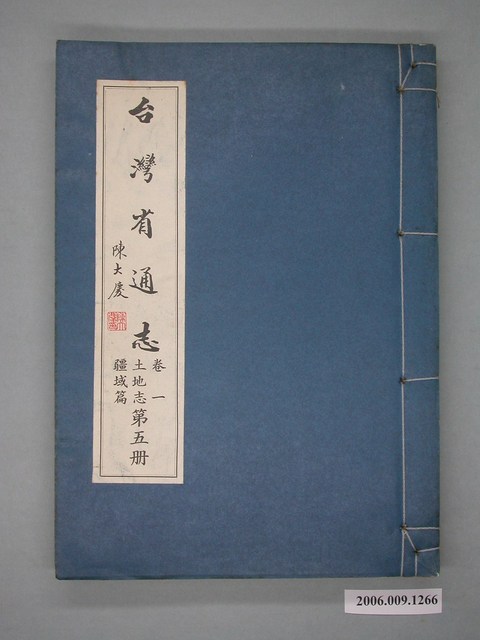 台灣省通志
陳大慶
卷一
土地志
疆域篇
第五册
2006.009.1266